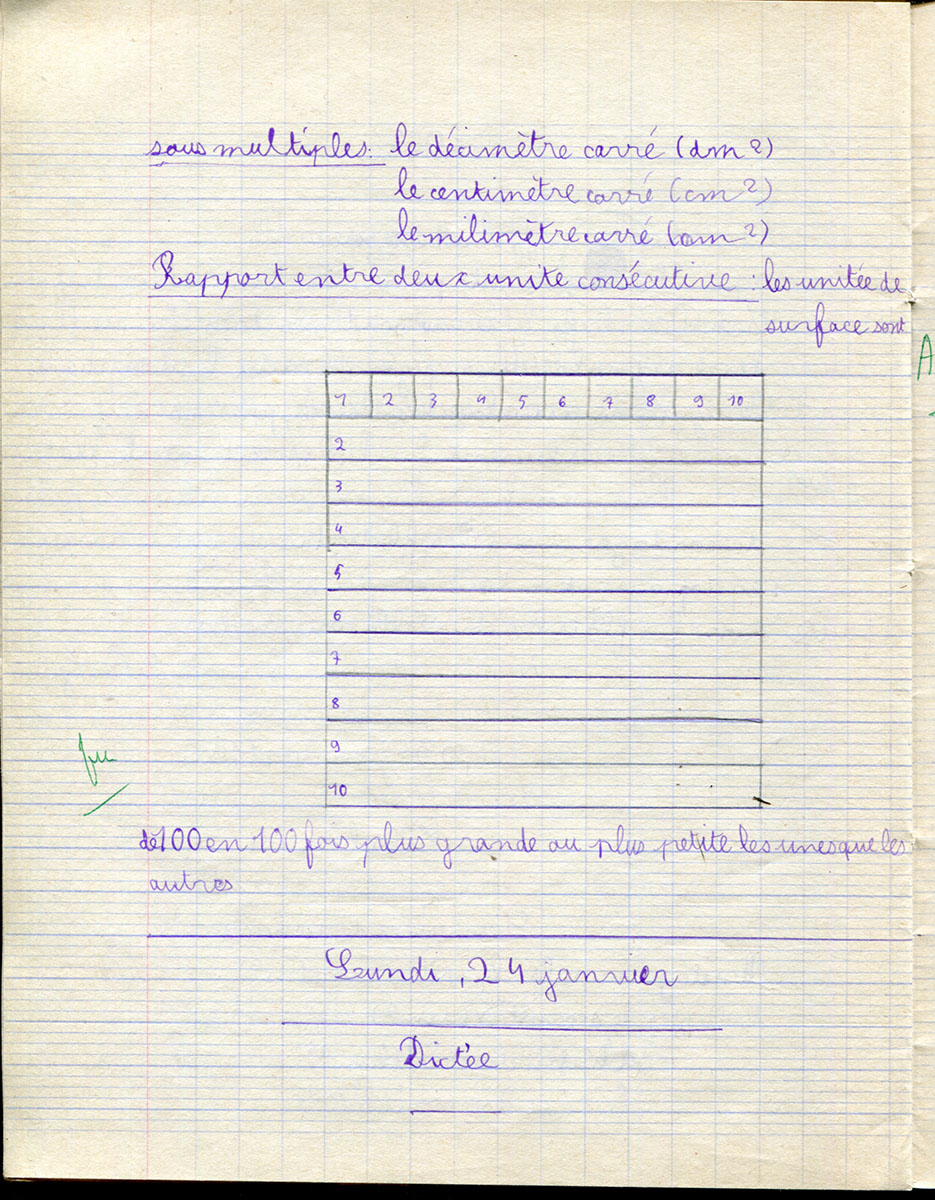 sous multiples: le décimètre carré (dm²)
le centimètre carré (cm²)
le milimètre carré (mm²)
Rapport entre deux unite consécutive : les unitée de
surface sont
1 2 3 4 5 6 7 8 9 10
2
3
4
5
6
7
8
9
10
de 100 en 100 fois plus grande ou plus petite les unes que les
autres
Lundi, 24 janvier
Dictée